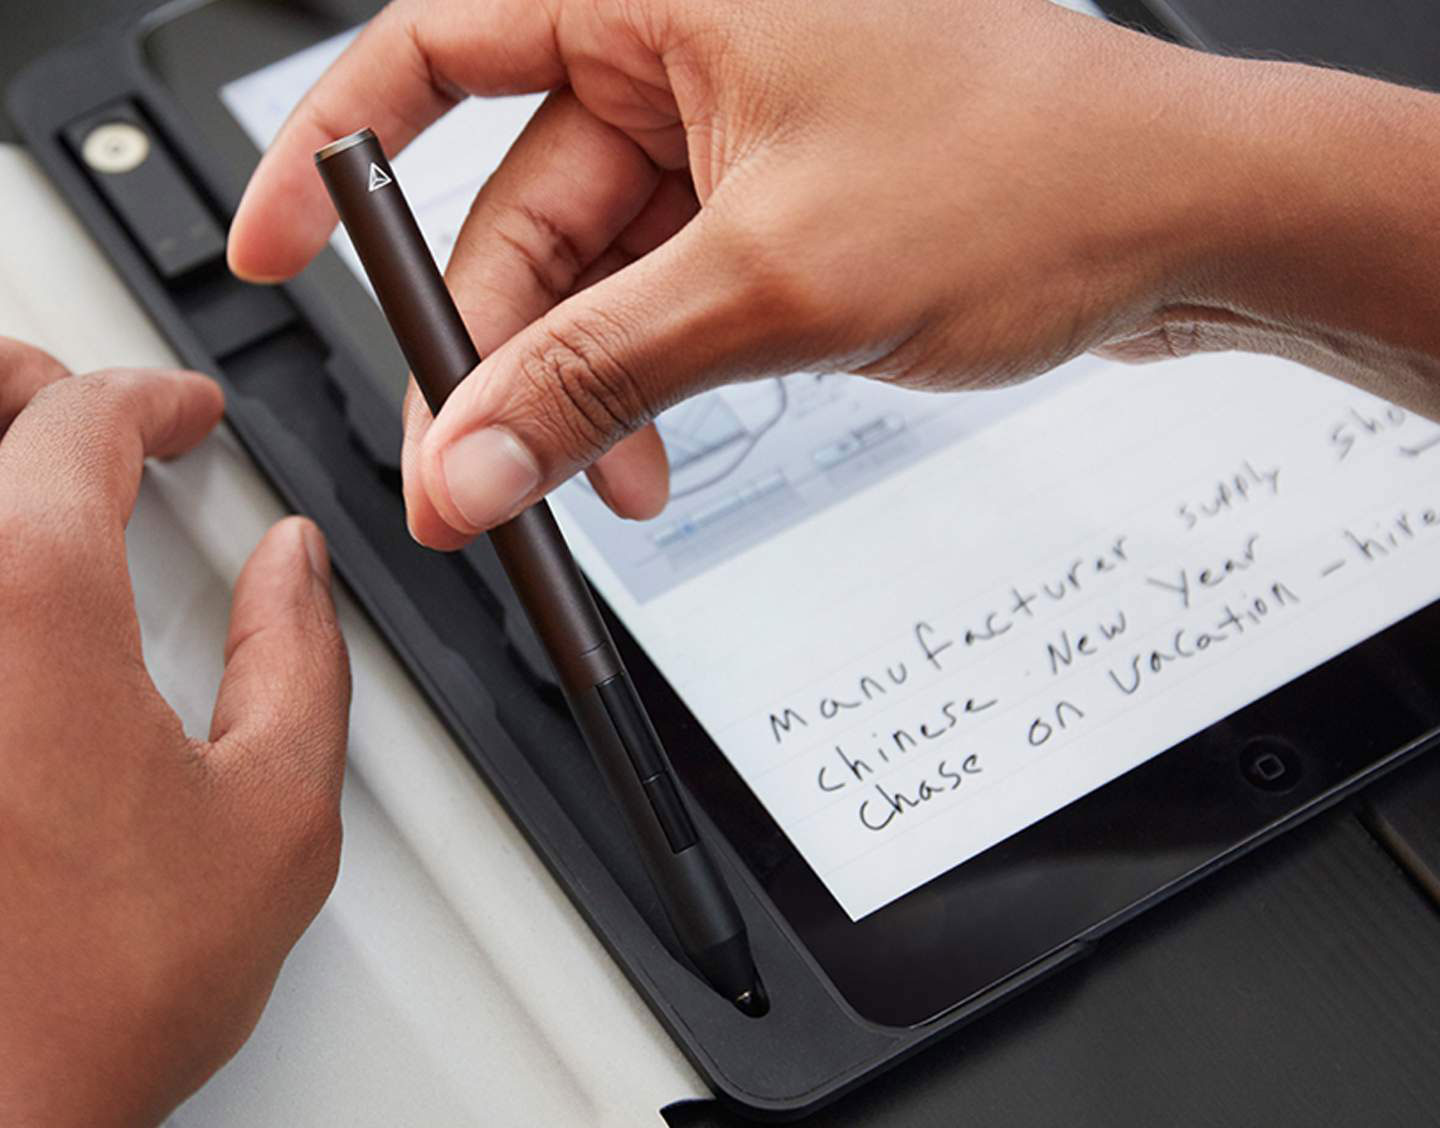 manufacturer supply
chinese. New Year
chase on vacation - hire